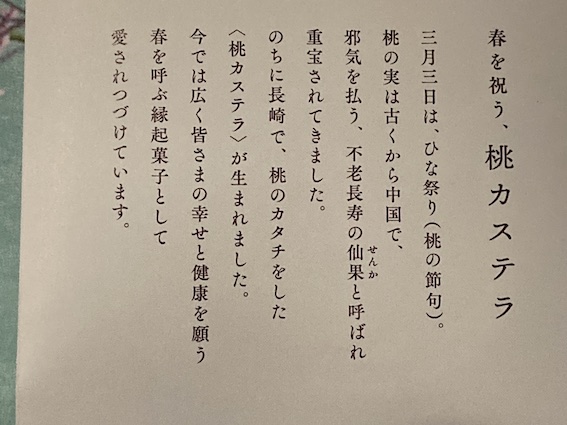 春を祝う、桃カステラ
三月三日は、ひな祭り(桃の節句)。
桃の実は古くから中国で、
邪気を払う、不老長寿の仙果と呼ばれ
せんか
重宝されてきました。
のちに長崎で、桃のカタチをした
〈桃カステラ〉が生まれました。
今では広く皆さまの幸せと健康を願う
春を呼ぶ縁起菓子として
愛されつづけています。